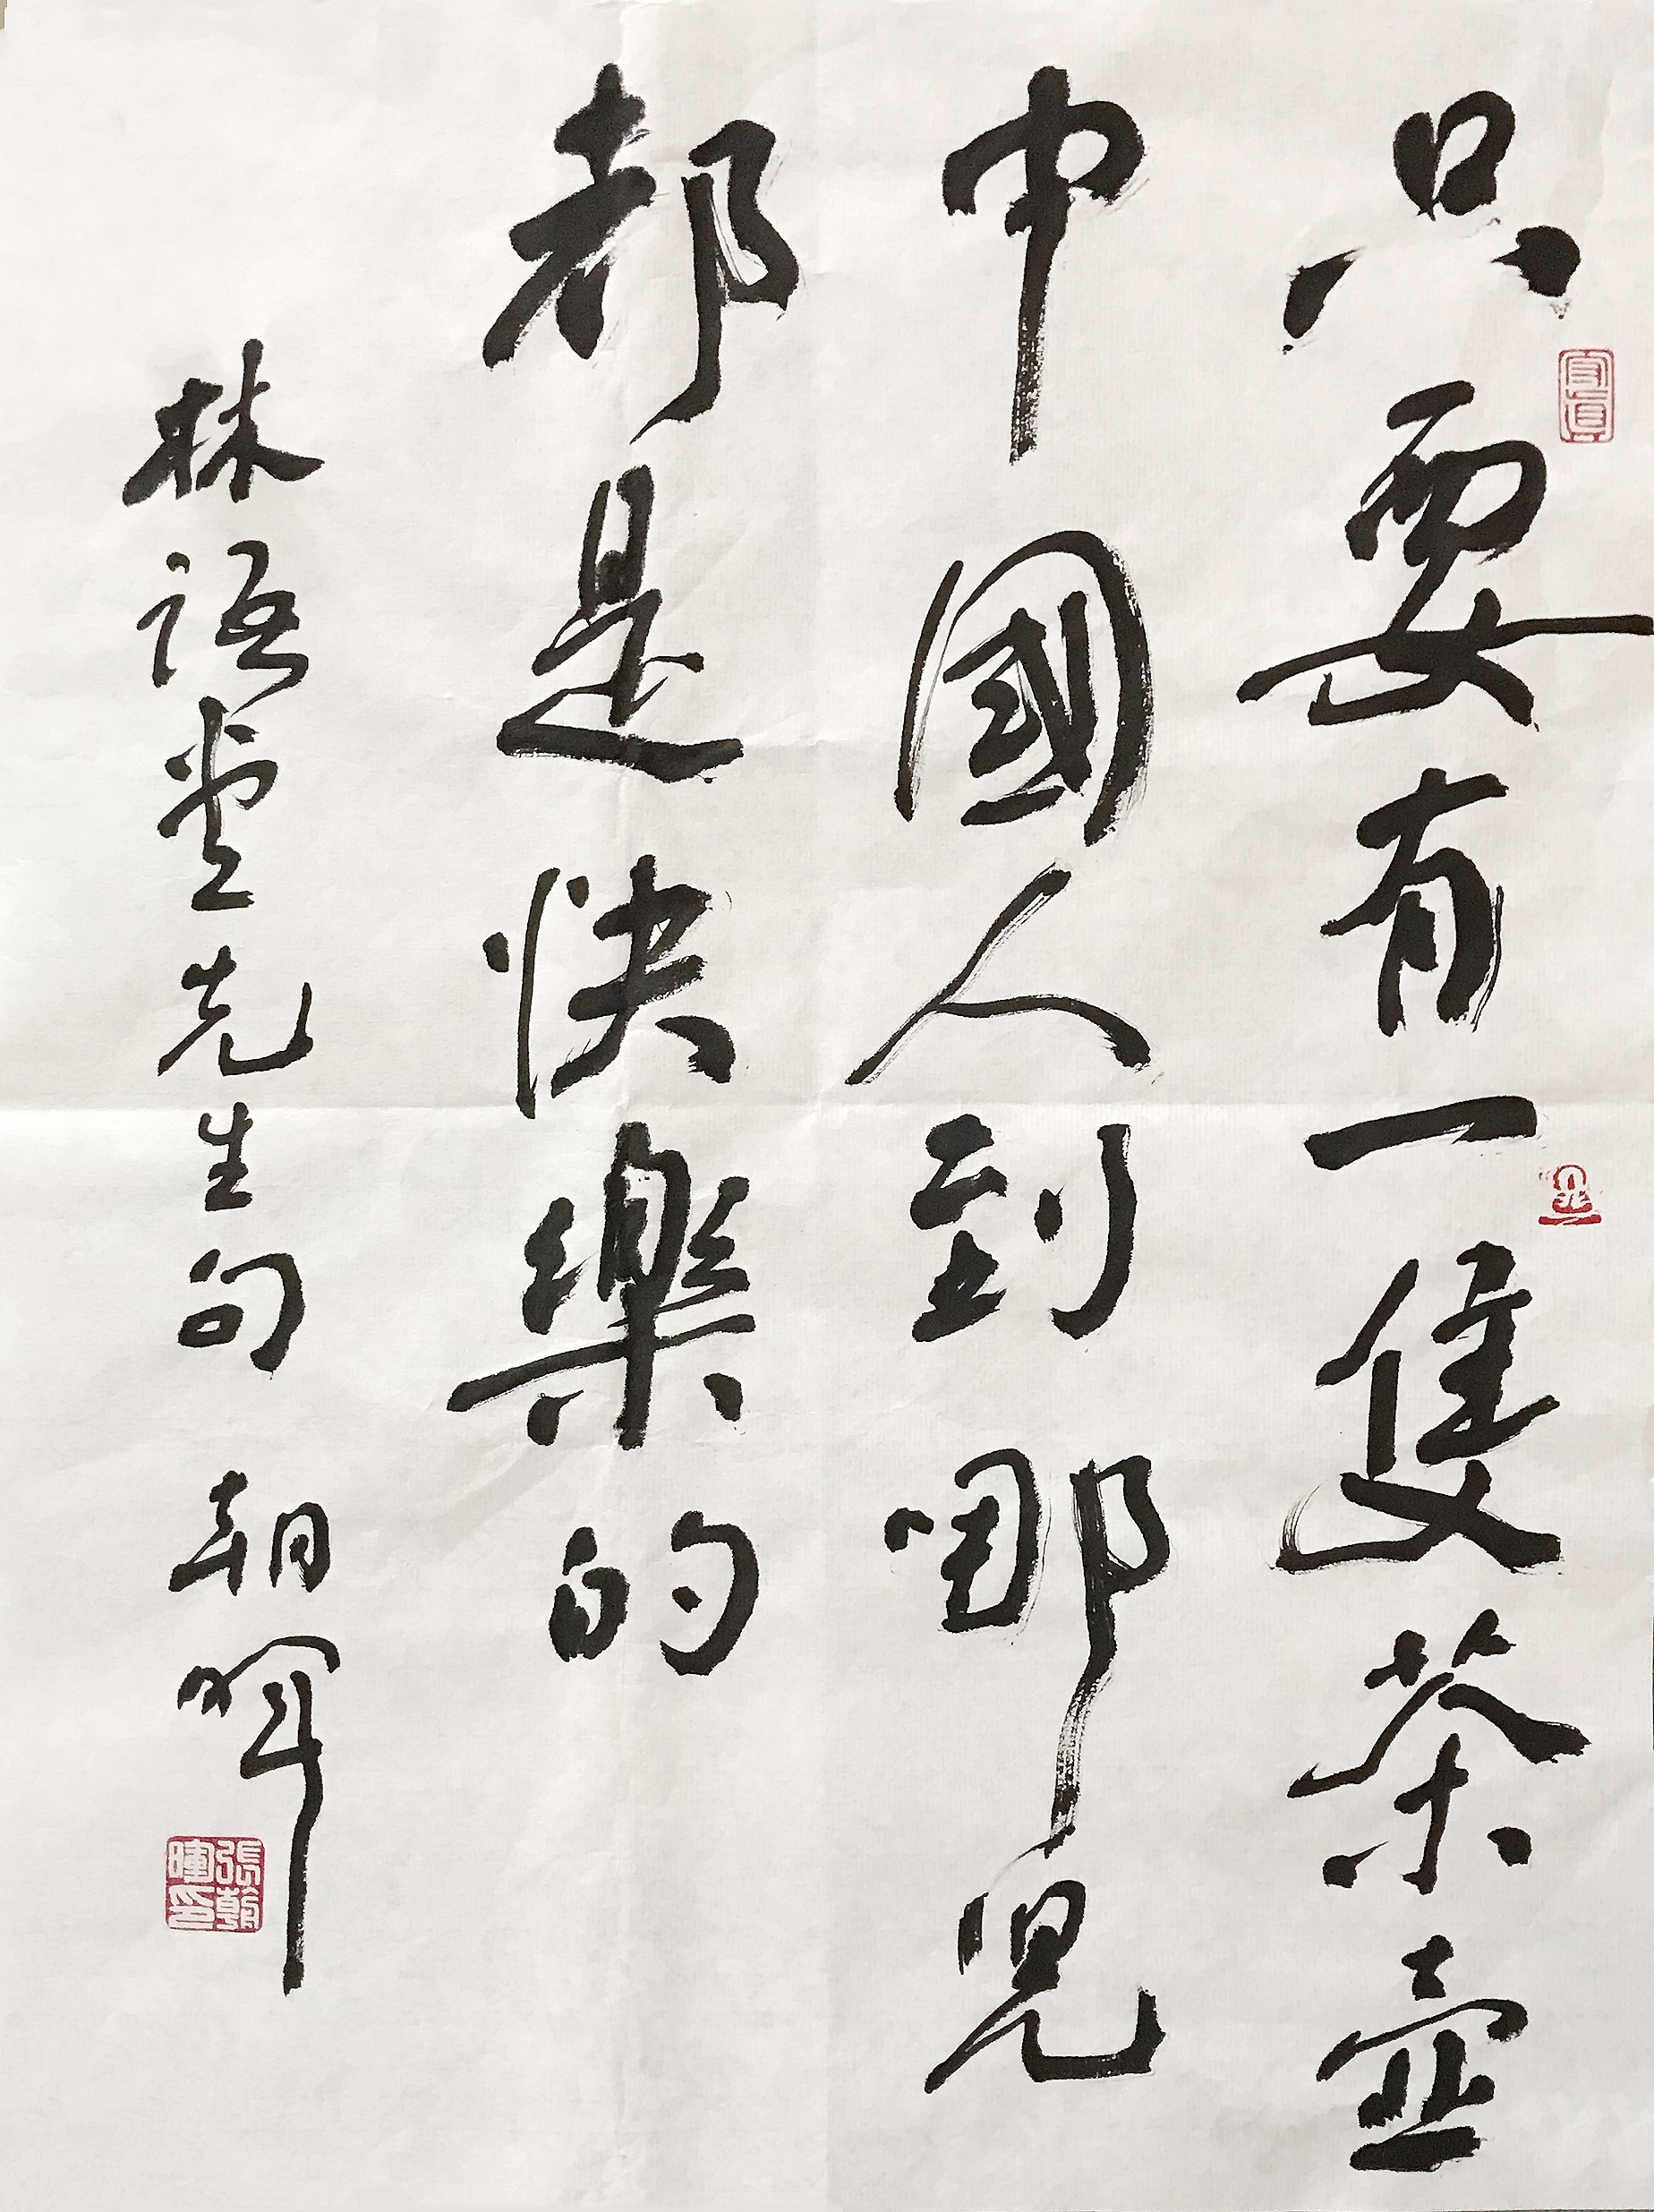 只要有一隻茶壺
中國人到哪兒
都是快樂的
林語堂先生句 朝暉
張朝暉印